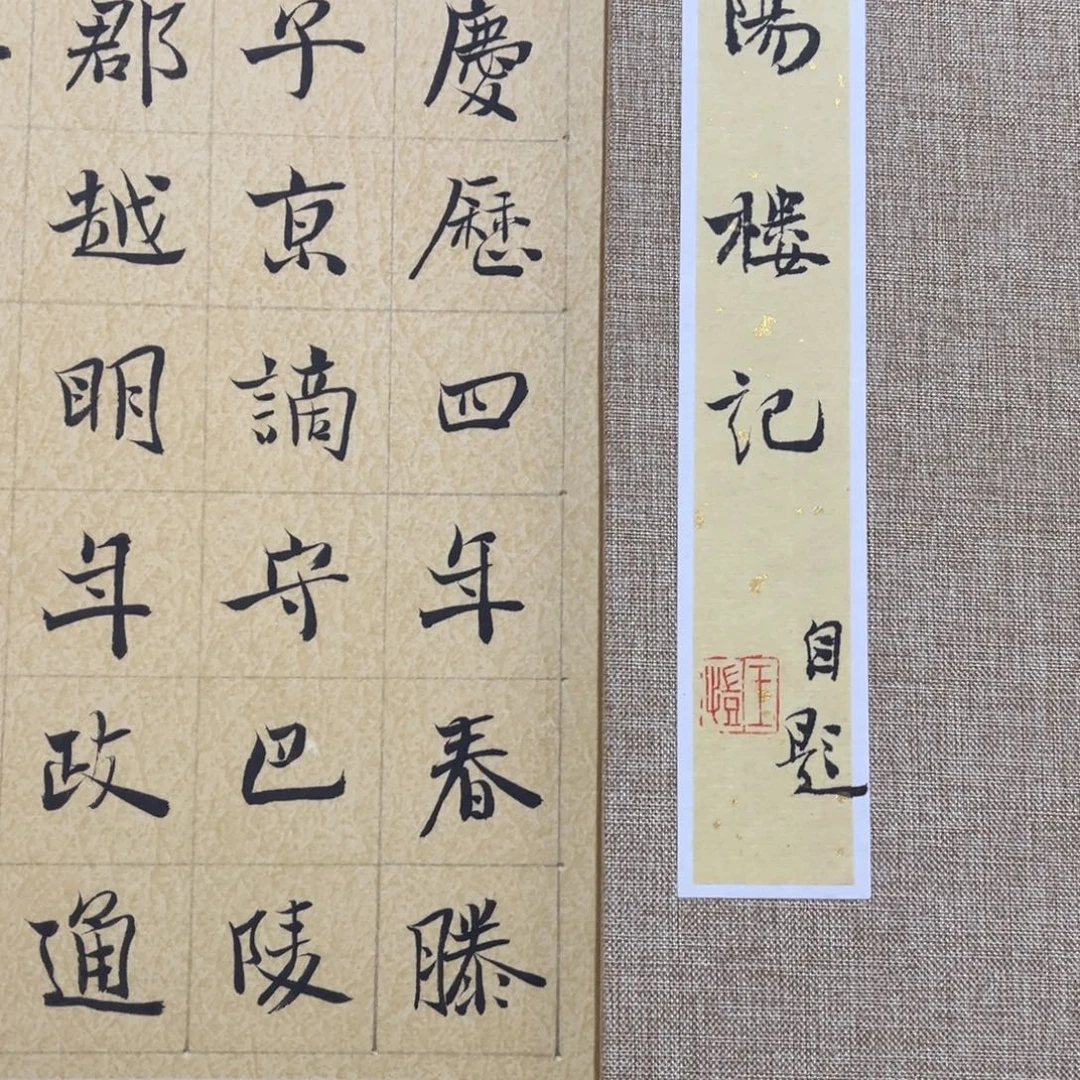 陽樓記
自題
慶歷四年春滕
子亰謫守巴陵
郡越明年政通